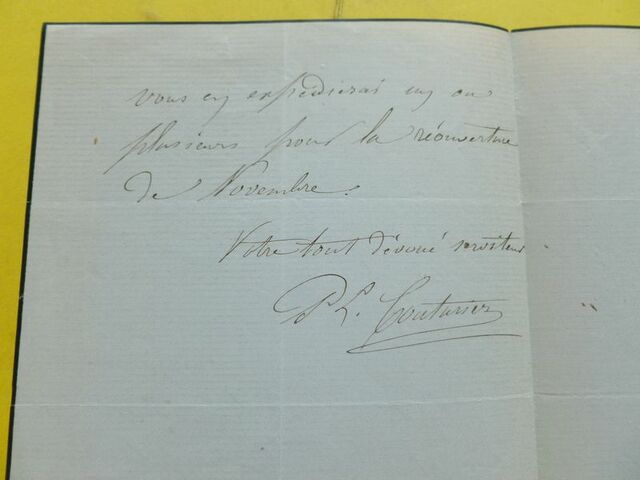 vous en expédierai un ou
plusieurs pour la réouverture
de Novembre.
Votre tout dévoué serviteur
P. L. Couturier